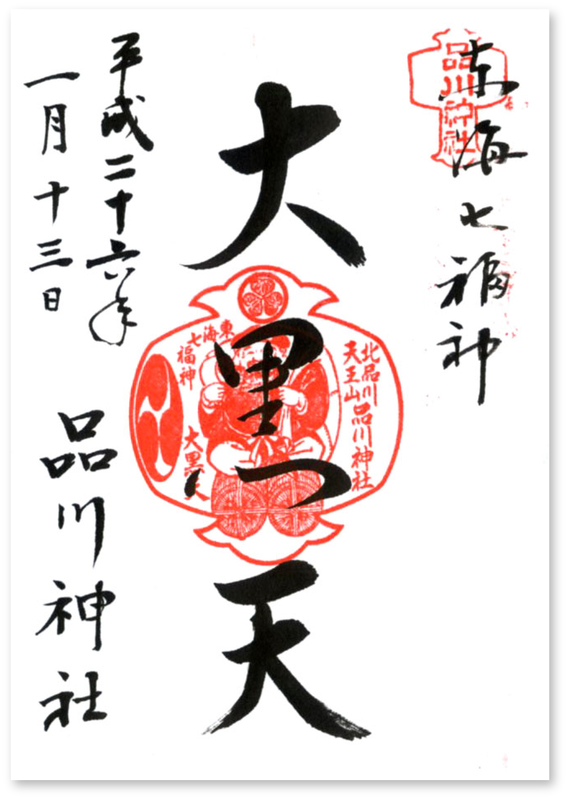 東海七福神
品川神社
大黒天
北品川
天王山 品川神社
東海
七福神
大黒天
平成二十六年
一月十三日
品川神社